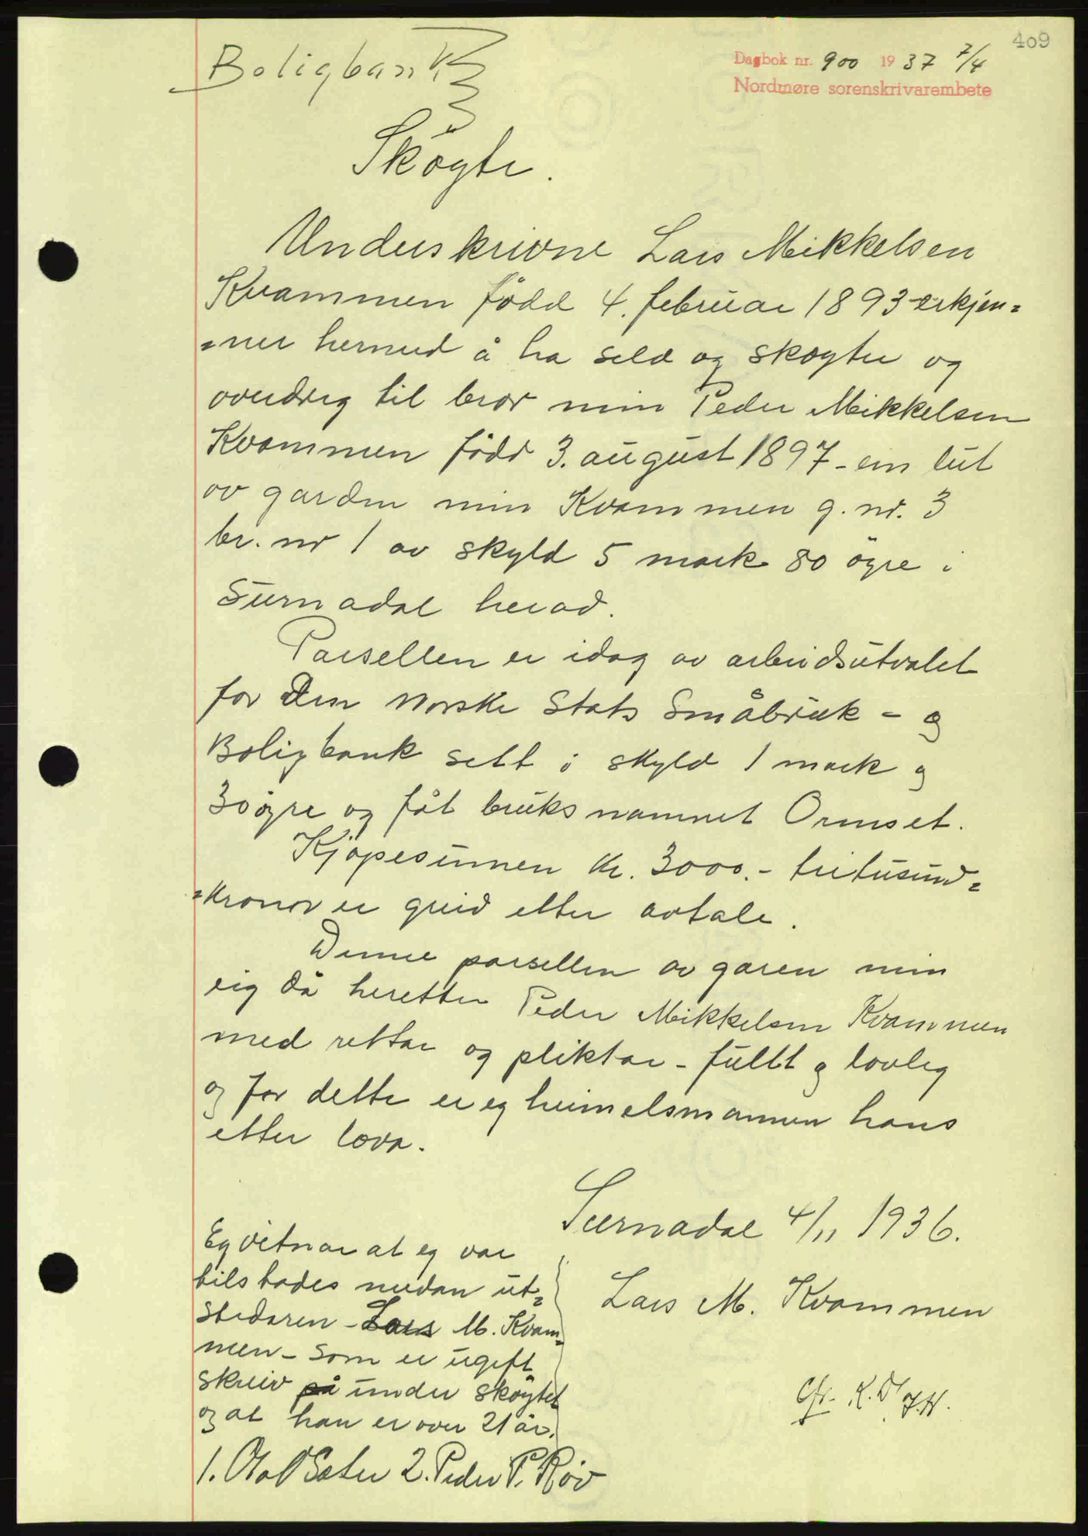 409
Boligbank
Dagbok nr. 900 1937 7/4
Nordmøre sorenskrivarembete
Skøgte.
Underskrivne Lars Mikkelsen
Kvammen fødd 4. februar 1893 erkjen=
=ner hermed å ha seld og skøgter og
overdreg til bror min Peder Mikkelsen
Kvammen fødd 3. august 1897 - ein lut
av garden min Kvammen g. nr. 3
br. nr 1 av skyld 5 mark 80 øyre i
Surnadal herad.
Parsellen er idag av arbeidsutvalet
for Den Norske Stats Småbruk - og
Boligbank sett i skyld 1 mark og
30 øyre og fåt bruksnamnet Ormset.
Kjøpesumen kr. 3000.- tritusund=
=kronor er greid etter avtale.
Denne parsellen av garen min
eig då heretter Peder Mikkelsen Kvammen
med rettar og pliktar - fullt og lovleg
og for dette er eg heimelsmannen hans
etter lova.
Surnadal 4/11 1936.
Lars M. Kvammen
Eg vitnar at eg var
tilstades medan ut=
stedaren - Lars M. Kvam=
men - som er ugift
skreiv på under skøytet
og at han er over 21 år.
1. Olaf Sæter 2. Peder P. Røv
Cfr. K.D. J.H.